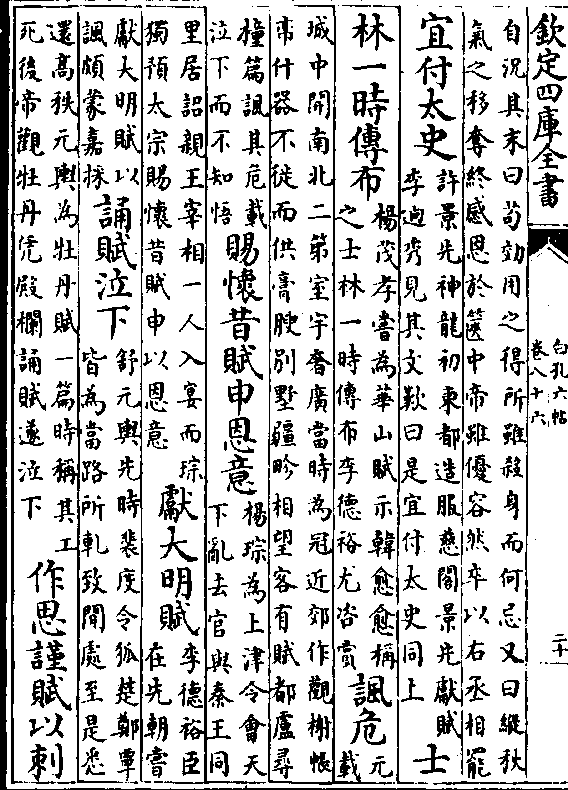 欽定四庫全書
白孔六帖
卷八十六
二十
自況其末曰茍効用之得所雖殺身而何忌又曰縱秋
氣之移奪終感恩於篋中帝雖優容然卒以右丞相罷
宜付太史
許景先神龍初東都造服慈閣景先獻賦
李逈秀見其文歎曰是宜付太史同上
士
林一時傳布
楊茂孝嘗為華山賦示韓愈愈稱
之士林一時傳布李德裕尤咨賞
諷危
元
載
城中開南北二第室宇奢廣當時為冠近郊作觀榭帳
帟什器不徙而供膏腴别墅疆畛相望客有賦都盧尋
橦篇諷其危載
泣下而不知悟
賜懷昔賦申恩意
楊琮為上津令會天
下亂去官與秦王同
里居詔親王宰相一人入宴而琮
獨預太宗賜懷昔賦申以恩意
獻大明賦
李德裕臣
在先朝嘗
獻大明賦以
諷頗蒙嘉採
誦賦泣下
舒元輿先時裴度令狐楚鄭覃
皆為當路所軋致閒處至是悉
還高秩元輿為牡丹賦一篇時稱其工
死後帝觀牡丹凭殿欄誦賦遂泣下
作思謹賦以刺